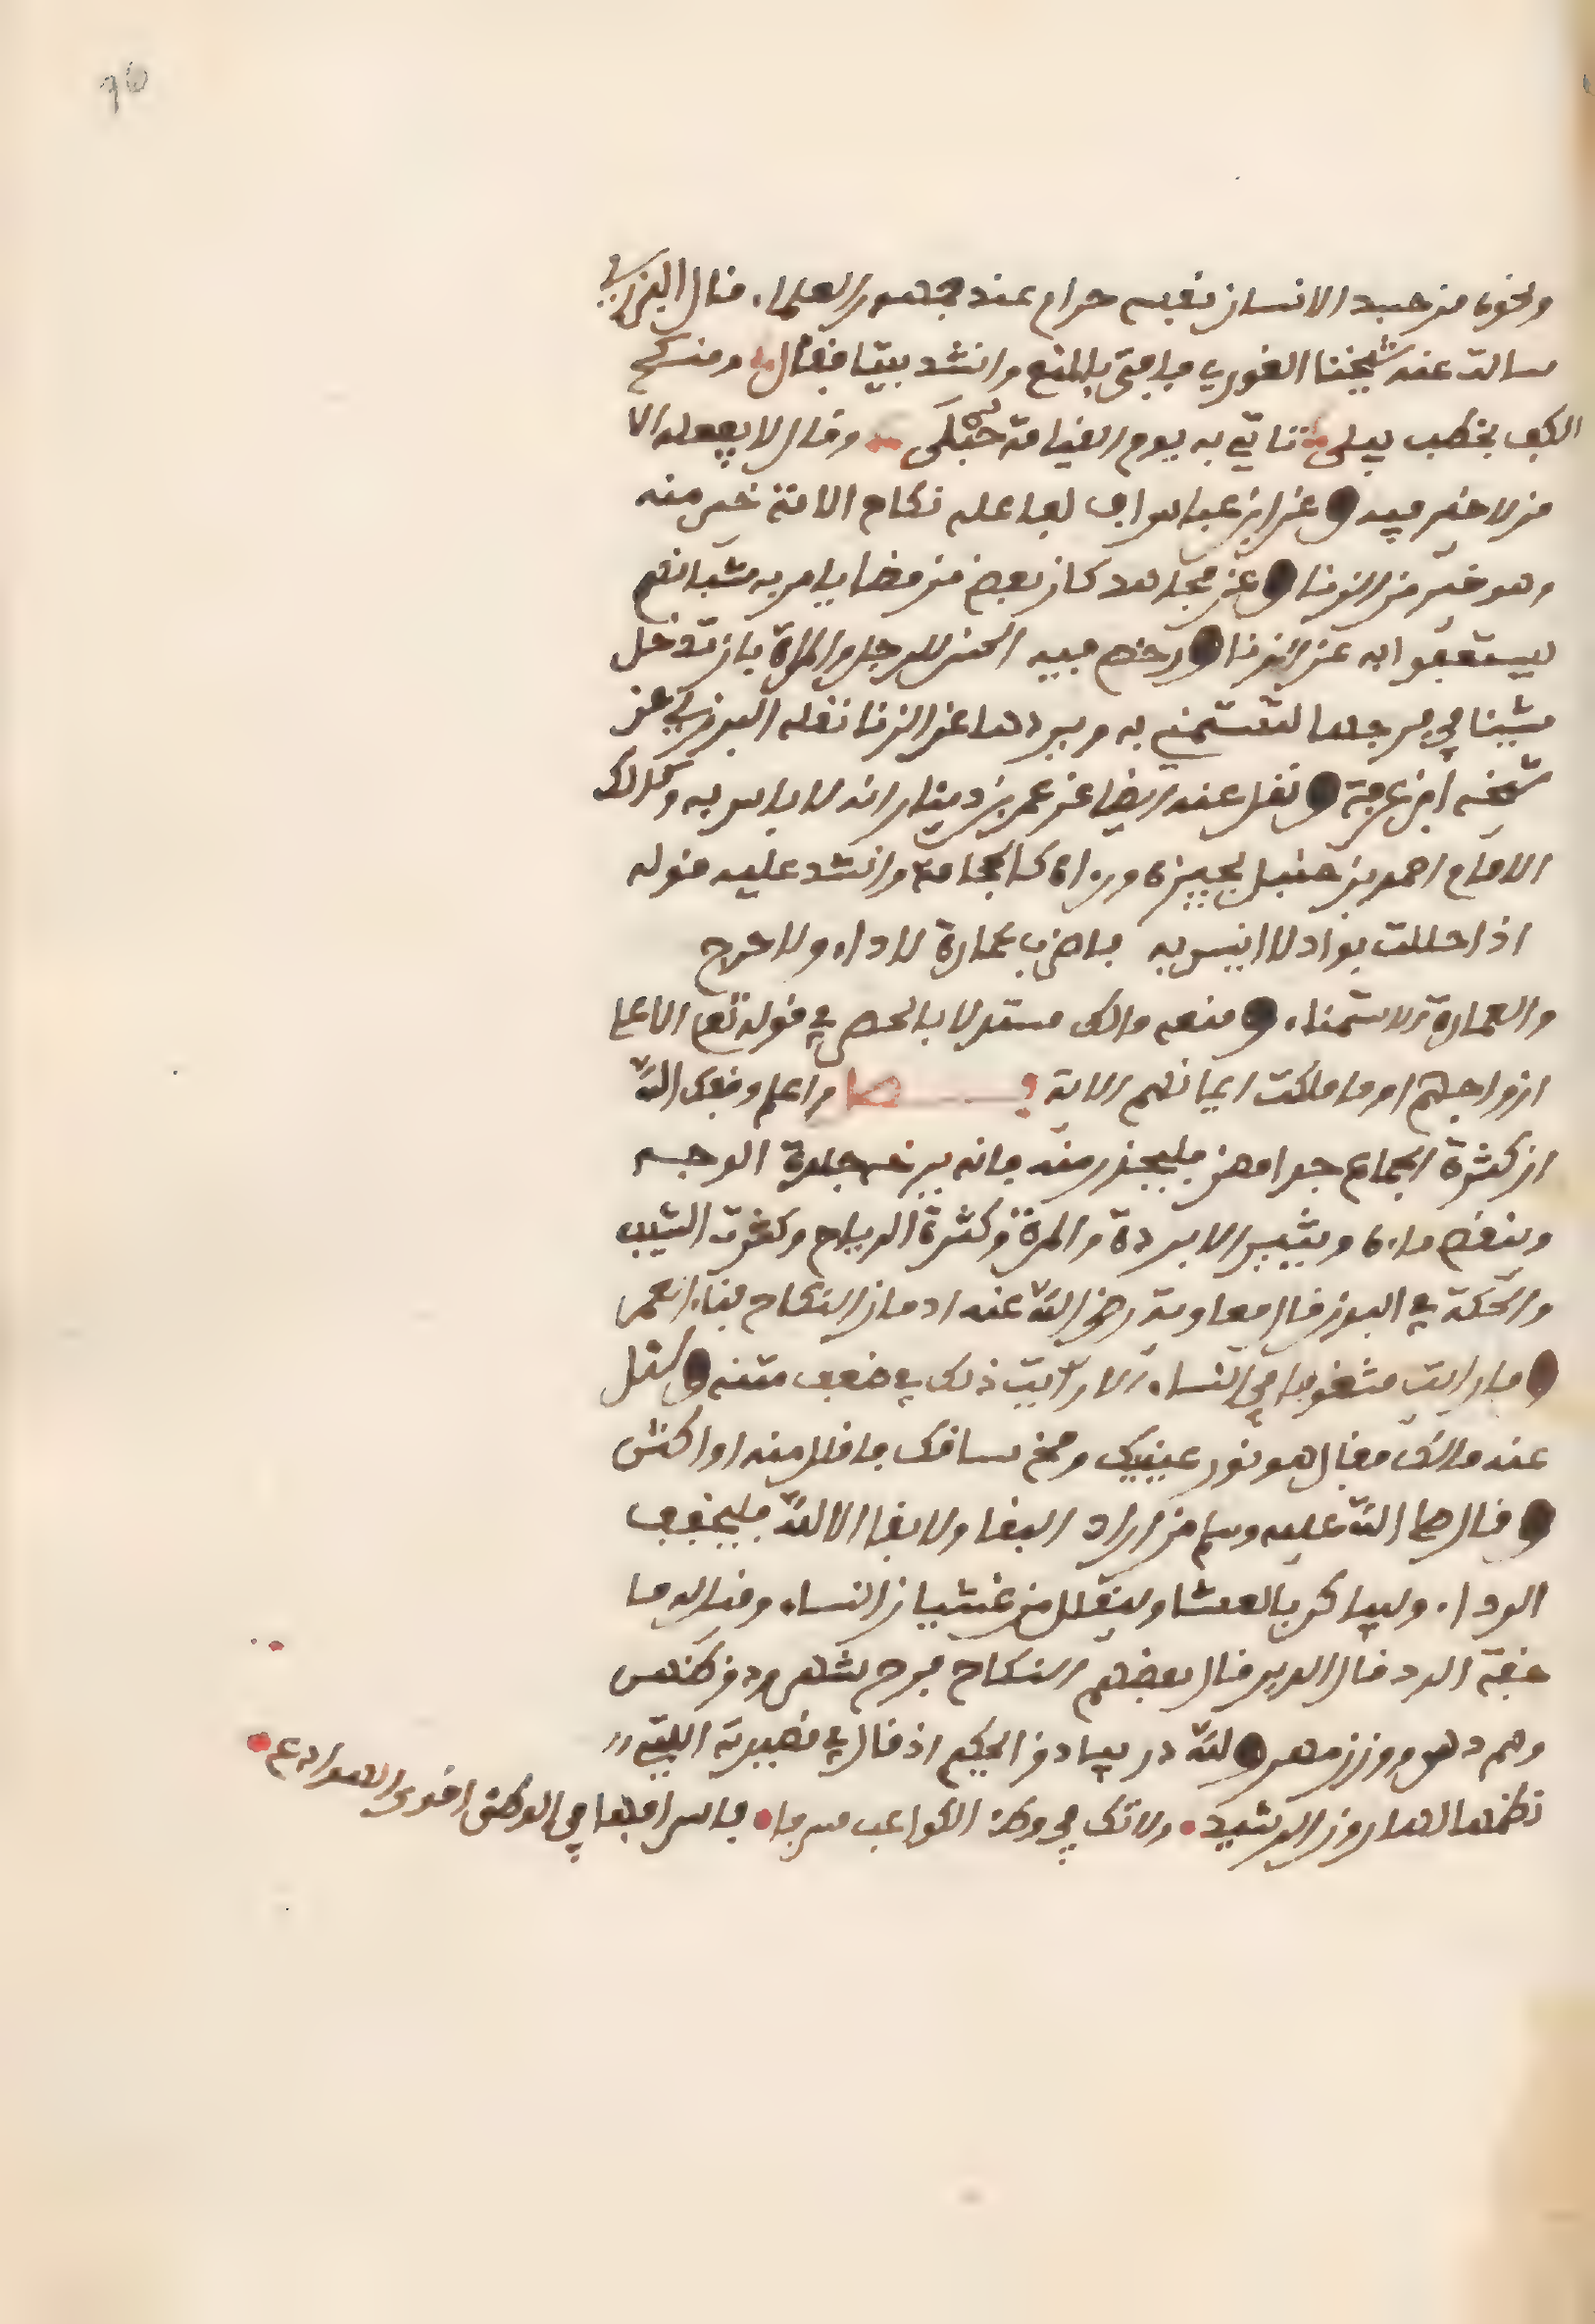 ونحوه من حبد الانسان نفسه حرام عند جمهور العلماء. قال البرزلي
سالت عنه شيخنا الغوري فافتى بالمنع وانشد بيتا فقال ومنكح
الكف بخطب يبلى تاتي به يوم القيامة حبلى وقال لا يفعله الا
من لا خير فيه وعن ابن عباس اف لفاعله نكاح الامة خير منه
وهو خير من الزنا وعن مجاهد كان بعض من مضا يامر به شبانهم
يستعفوا به عن الزنا ورخص فيه الحسن للرجل والمراة بان تدخل
شيئا في فرجها لتستمني به ويردها عن الزنا نقله البرزلي عن
شيخه ابن عرفة ونقل عنه ايضا عن عمر بن دينار انه لا باس به وكذلك
الامام احمد بن حنبل يجيزه ورءاه كالحجامة وانشد عليه قوله
اذا حللت بواد لا انيس به فاضرب عمارة لا داء ولا حرج
والعمارة الاستمناء. ومنعه مالك مستدلا بالحصر في قوله تعلى الا على
ازواجهم او ما ملكت ايمانهم الاية فصل واعلم وفقك الله
ان كثرة الجماع جدا مضر فليحذر منه فانه يرخي جلدة الوجه
وينغص ماءه ويثير الابردة والمرة وكثرة الرياح وكغرت الشيب
والحكة في البدن قال معاوية رضي الله عنه ادمان النكاح فناء العمر
وما رايت مشغوفا في النساء. الا رايت ذلك في ضعف متنه وسئل
عنه مالك فقال هو نور عينيك ومخ ساقك فاقلل منه او اكثر
وقال صلى الله عليه وسلم من اراد البقا ولا بقا الا لله فليخفف
الرداء. وليباكر بالعشا وليقلل من غشيان النساء. وقيل له ما
خفة الرد قال الدين قال بعضهم النكاح فرح شهر ودوق ظهر
وهم دهر ووزن مهر ولله در بيادق الحكيم اذ قال في قصيدته التي
نظمها لهارون الرشيد. ولا تك في وطئ الكواعب مسرفا. فاسرافها في الوطئ اقوى الهوادع.